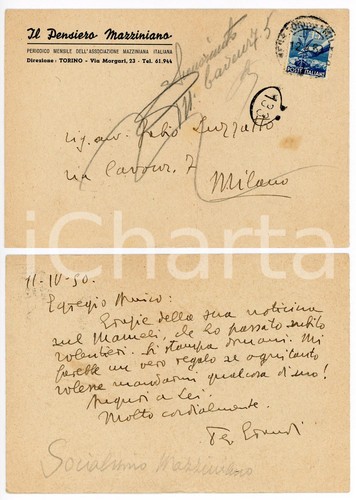 Il Pensiero Mazziniano
PERIODICO MENSILE DELL'ASSOCIAZIONE MAZZINIANA ITALIANA
Direzione: TORINO - Via Morgari, 23 - Tel. 61.944
POSTE ITALIANE
133
Sig. avv. Fabio Luzzatto
via Cavour, 7
Milano
iCharta
11-IV-50.
Egregio Amico:
Grazie della sua noticina
sul Mameli, che ho passato subito
volentieri. Si stampa domani. Mi
farebbe un vero regalo se ogni tanto
volesse mandarmi qualcosa di suo!
Auguri a Lei!
Molto cordialmente.
Socialismo Mazziniano